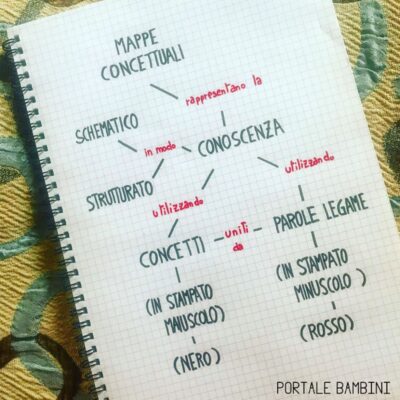 MAPPE
CONCETTUALI
rappresentano la
SCHEMATICO
in modo
CONOSCENZA
STRUTTURATO
utilizzando
utilizzando
CONCETTI
uniti
da
PAROLE LEGAME
(IN STAMPATO
MAIUSCOLO)
(IN STAMPATO
MINUSCOLO)
(NERO)
(ROSSO)
PORTALE BAMBINI